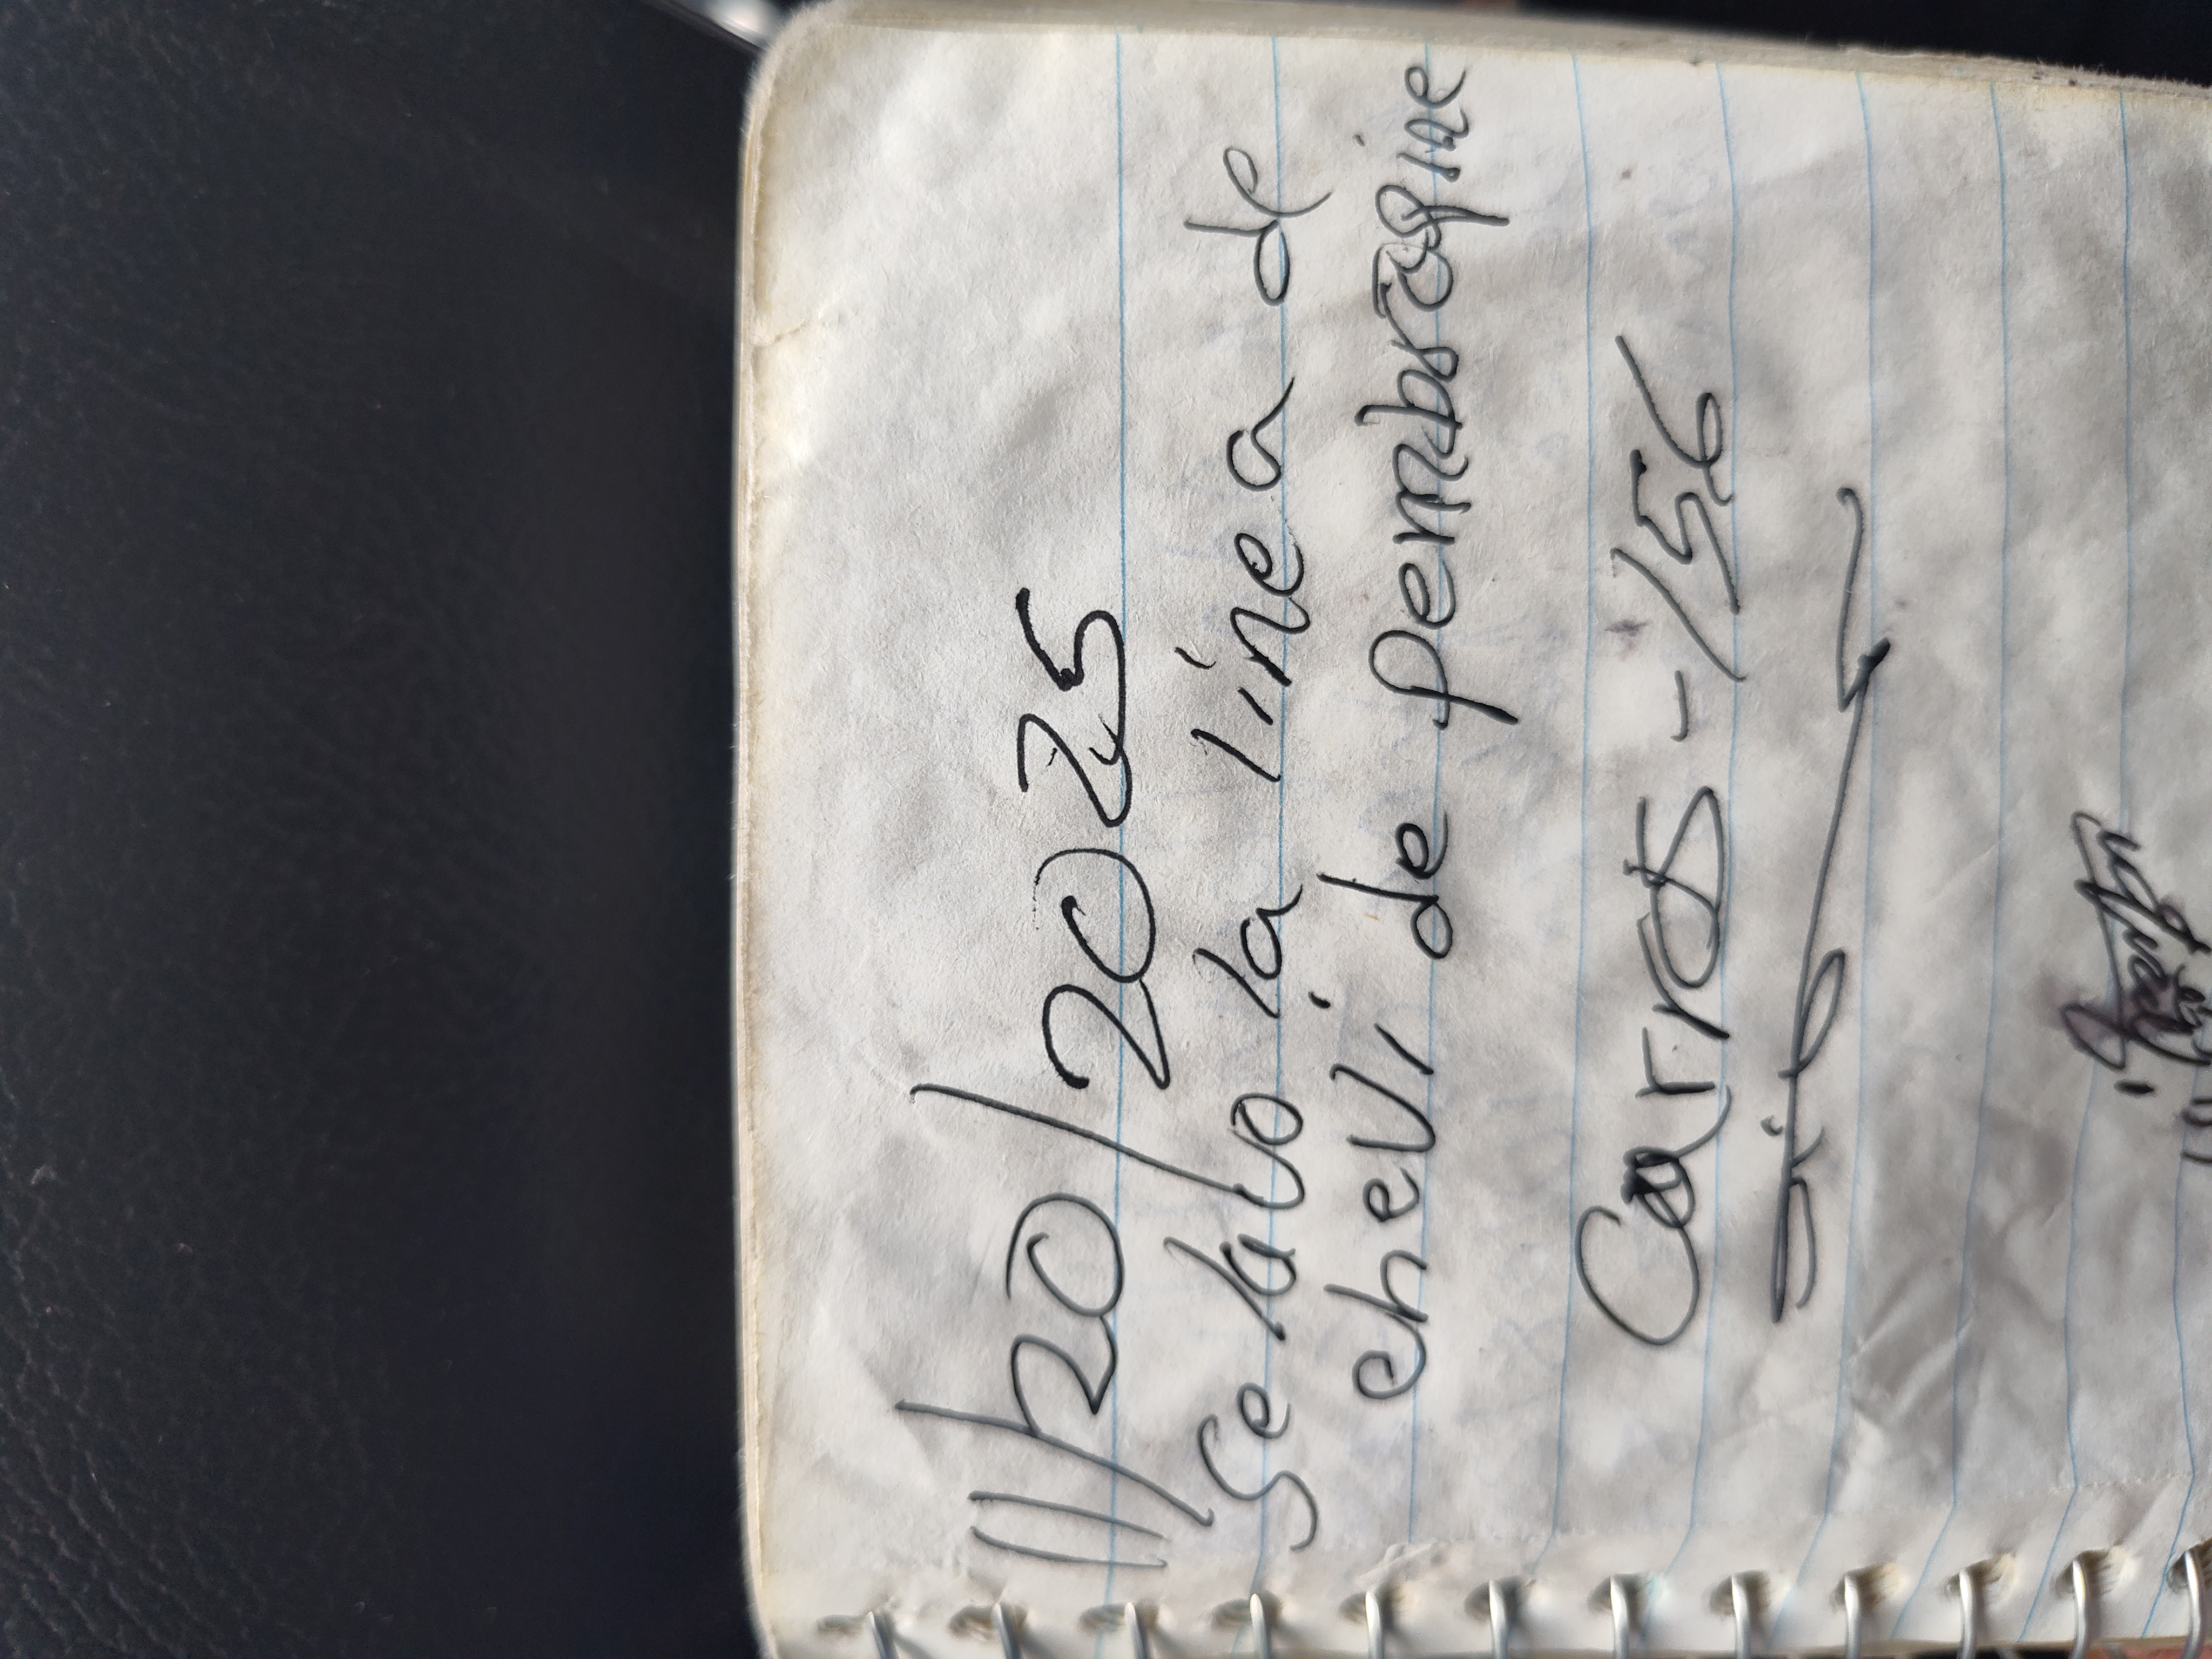 11/20/2025
Se lavo la linea de
chevi de pembroqine
Carros - 156